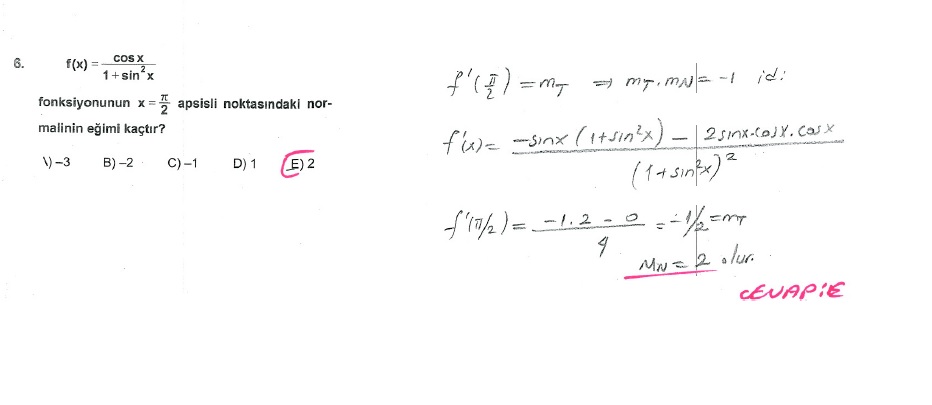 6. f(x) = cos x / 1 + sin²x
fonksiyonunun x = π/2 apsisli noktasındaki nor-
malinin eğimi kaçtır?
\) –3 B) –2 C) –1 D) 1 E) 2
f'(π/2) = m_T ⇒ m_T . m_N = -1 idi
f'(x) = -sinx (1+sin²x) - 2 sinx.cosx.cosx / (1+sin²x)²
f'(π/2) = -1.2 - 0 / 4 = -1/2 = m_T
m_N = 2 olur.
CEVAP:E